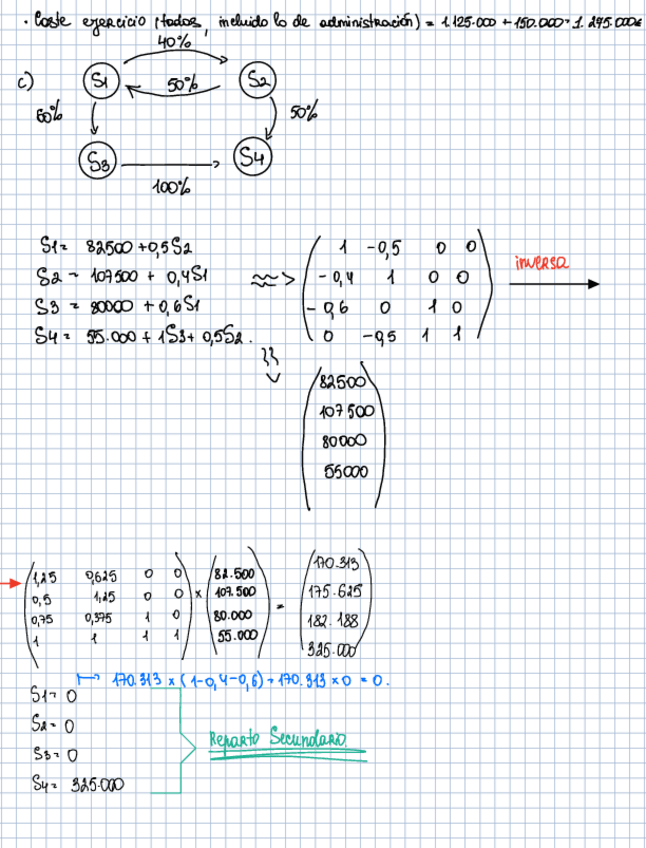 · Coste ejercicio (todos, incluido lo de administración) = 1.125.000 + 150.000 = 1.295.000€
c)
40%
S1 S2
50%
60% 50%
S3 S4
100%
S1 = 82500 + 0,5S2
S2 = 107500 + 0,4S1
S3 = 80000 + 0,6S1
S4 = 55.000 + 1S3 + 0,5S2.
1 -0,5 0 0
-0,4 1 0 0
-0,6 0 1 0
0 -0,5 1 1
inversa
82500
107500
80000
55000
1,25 0,625 0 0
0,5 1,25 0 0
0,75 0,375 1 0
1 1 1 1
x
82.500
107.500
80.000
55.000
=
170.313
175.625
182.188
325.000
170.313 x (1-0,4-0,6) = 170.313 x 0 = 0.
S1 = 0
S2 = 0
S3 = 0
S4 = 325.000
Reparto Secundario.